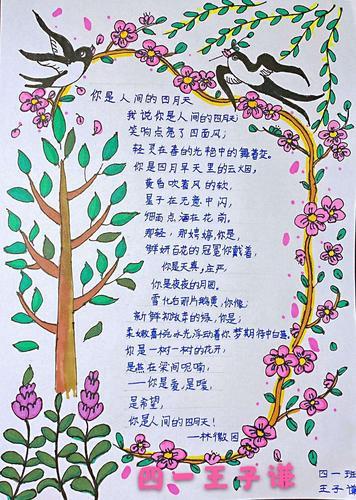 你是人间的四月天
我说你是人间的四月天
笑响点亮了四面风；
轻灵在春的光艳中的舞着变。
你是四月早天里的云烟，
黄昏吹着风的软，
星子在无意中闪，
细雨点洒在花前。
那轻，那娉婷，你是，
鲜妍百花的冠冕你戴着，
你是天真，庄严，
你是夜夜的月圆。
雪化后那片鹅黄，你像；
新鲜初放芽的绿，你是；
柔嫩喜悦水光浮动着你梦期待中白莲。
你是一树一树的花开，
是燕在梁间呢喃，
——你是爱，是暖，
是希望，
你是人间的四月天！
——林徽因
四一王子谦
四一班
王子谦